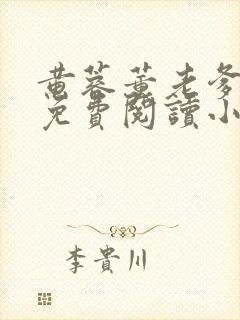 黄蓉黄老爹
免費閱讀小
李貴川